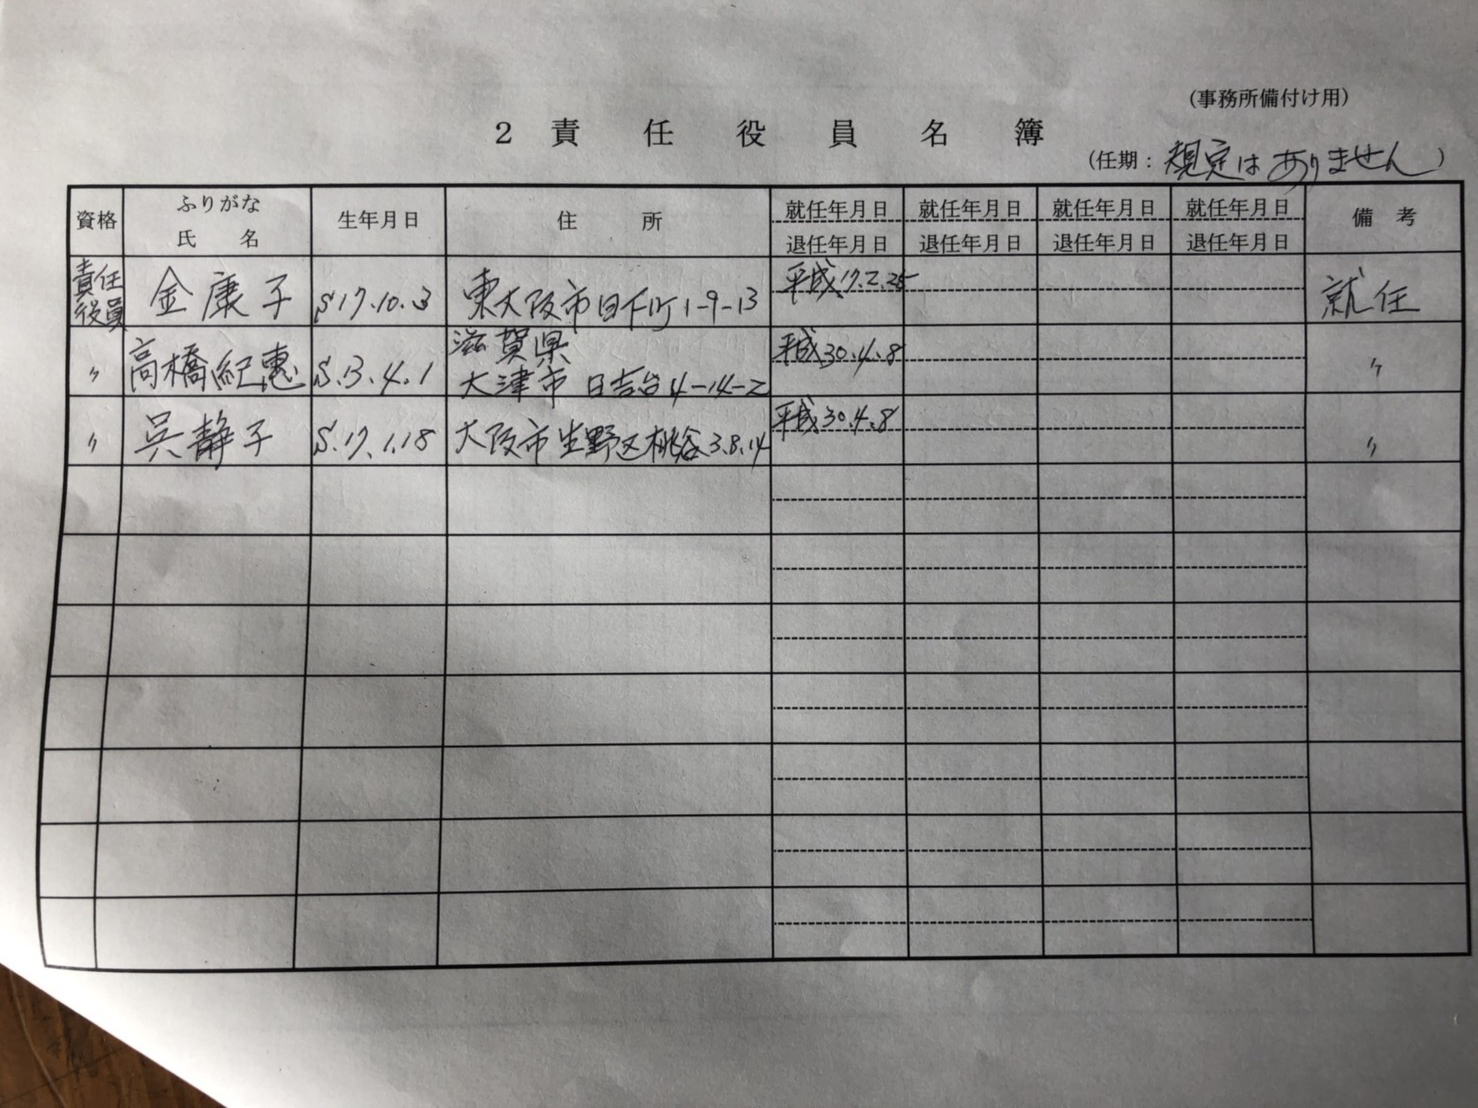 (事務所備付け用)
2 責任役員名簿
(任期：規定はありません)
資格 ふりがな 氏名 生年月日 住所 就任年月日 就任年月日 就任年月日 就任年月日 備考
退任年月日 退任年月日 退任年月日 退任年月日
責任役員 金康子 S17.10.3 東大阪市日下町1-9-13 平成17.2.25 就任
〃 高橋紀恵 S.13.4.1 滋賀県 平成30.4.8 〃
大津市 日吉台4-14-2
〃 呉静子 S.17.1.18 大阪市生野区桃谷3.8.14 平成30.4.8 〃